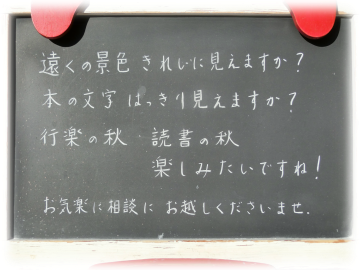 遠くの景色 きれいに見えますか?
本の文字 はっきり見えますか?
行楽の秋 読書の秋
楽しみたいですね!
お気楽に相談に お越しくださいませ.